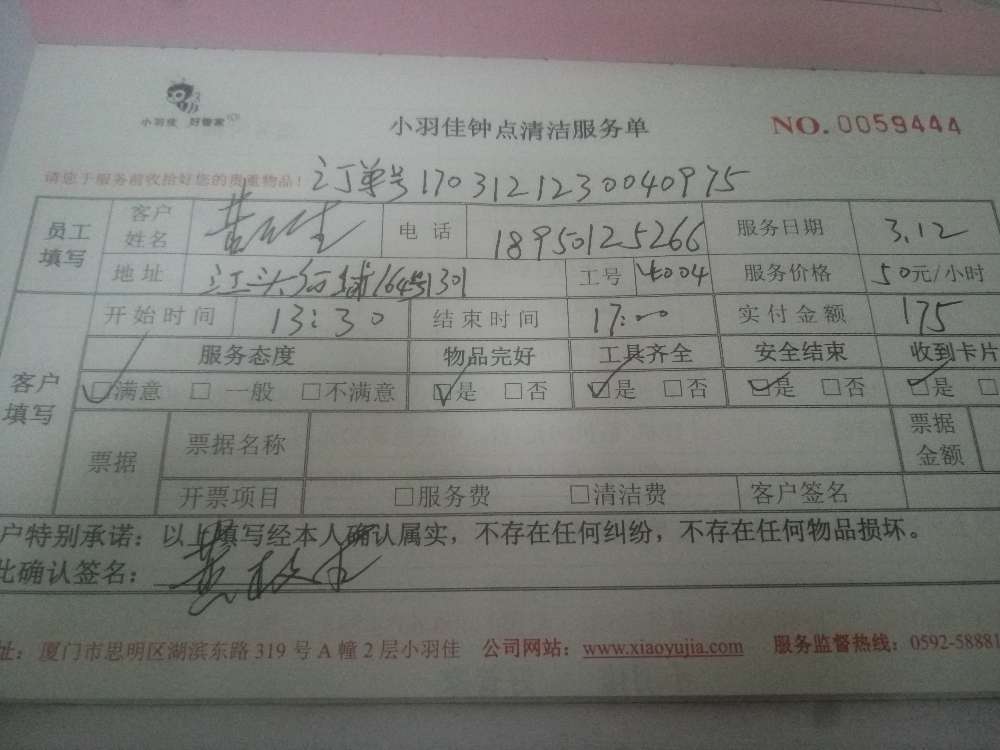 小羽佳 好管家
小羽佳钟点清洁服务单 NO.0059444
请您于服务前收拾好您的贵重物品! 订单号1703121230040975
员工填写 客户姓名 电话 18950125266 服务日期 3.12
地址 江头 164号1301 工号 4004 服务价格 50元/小时
客户填写 开始时间 13:30 结束时间 17:00 实付金额 175
服务态度 物品完好 工具齐全 安全结束 收到卡片
☑满意 □一般 □不满意 ☑是 □否 ☑是 □否 ☑是 □否 ☑是 □
票据 票据名称 票据金额
开票项目 □服务费 □清洁费 客户签名
户特别承诺：以上填写经本人确认属实，不存在任何纠纷，不存在任何物品损坏。
此确认签名：
址：厦门市思明区湖滨东路319号A幢2层小羽佳 公司网站：www.xiaoyujia.com 服务监督热线：0592-58881